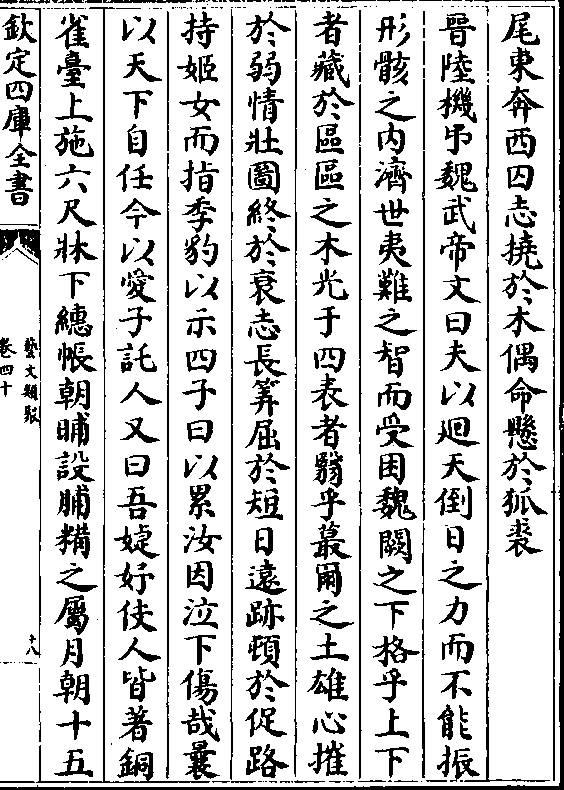 尾東奔西囚志撓於木偶命懸於狐裘
晉陸機弔魏武帝文曰夫以廻天倒日之力而不能振
形骸之内濟世夷難之智而受困魏闕之下格乎上下
者藏於區區之木光于四表者翳乎蕞爾之土雄心摧
於弱情壯圖終於衰志長筭屈於短日遠跡頓於促路
持姬女而指季豹以示四子曰以累汝因泣下傷哉曩
以天下自任今以愛子託人又曰吾婕妤伎人皆著銅
雀臺上施六尺牀下繐帳朝晡設脯糒之屬月朝十五
欽定四庫全書
藝文類聚
卷四十
十八